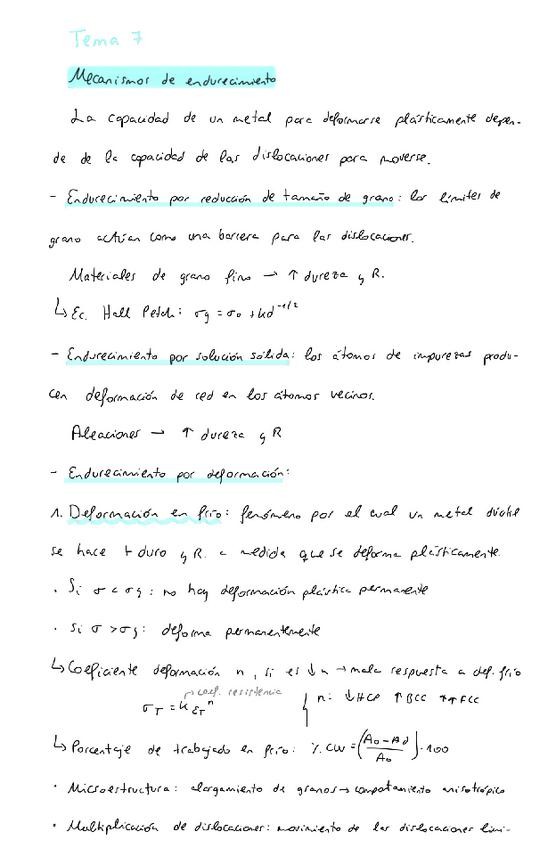 Tema 7
Mecanismos de endurecimiento
La capacidad de un metal para deformarse plásticamente depen-
de de la capacidad de las dislocaciones para moverse.
- Endurecimiento por reducción de tamaño de grano: los límites de
grano actúan como una barrera para las dislocaciones.
Materiales de grano fino → ↑ dureza y R.
↳ Ec. Hall Petch: σy = σo + kd^-1/2
- Endurecimiento por solución sólida: los átomos de impurezas produ-
cen deformación de red en los átomos vecinos.
Aleaciones → ↑ dureza y R
- Endurecimiento por deformación:
1. Deformación en frío: fenómeno por el cual un metal dúctil
se hace + duro y R. a medida que se deforma plásticamente.
· Si σ < σy: no hay deformación plástica permanente
· Si σ > σy: deforma permanentemente
↳ Coeficiente deformación n, si es ↓n → mala respuesta a def. frío
coef. resistencia
σT = K εT^n { n: ↓HCP ↑BCC ↑↑FCC
↳ Porcentaje de trabajado en frío: % CW = (Ao - Ad / Ao) · 100
· Microestructura: alargamiento de granos → compotamiento anisotrópico
· Multiplicación de dislocaciones: movimiento de las dislocaciones limi-